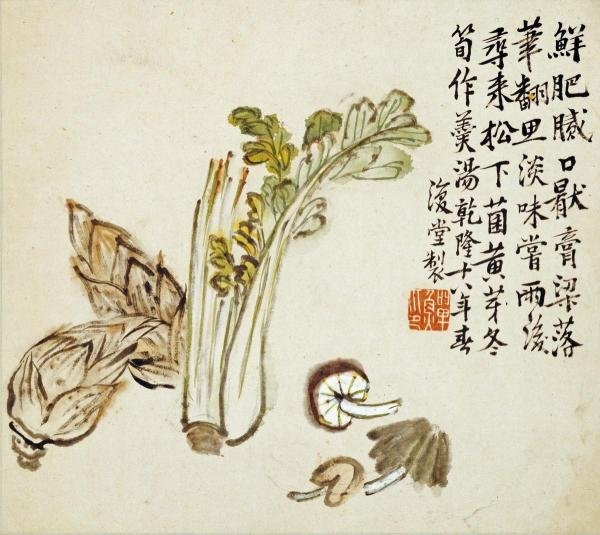 鮮肥膩口猒膏梁落
華翻思淡味嘗雨後
尋來松下菌黃芽冬
筍作羹湯乾隆十八年春
復堂製